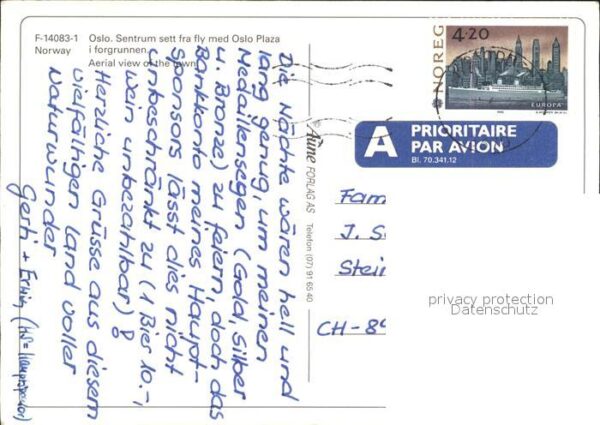 F-14083-1
Norway
Oslo. Sentrum sett fra fly med Oslo Plaza
i forgrunnen.
Aerial view of the town
Die Nächte waren hell und
lang genug, um meinen
Medaillensegen (Gold, Silber
u. Bronze) zu feiern, doch das
Bankkonto meines Haupt-
Sponsors lässt dies nicht
unbeschränkt zu (1 Bier 10.-,
Wein unbezahlbar)!
Herzliche Grüsse aus diesem
vielfältigen Land voller
Naturwunder
Gerti + Erwin (HS = Hauptsponsor)
© Aune FORLAG AS Telefon (07) 91 65 40
NOREG
4·20
EUROPA
A PRIORITAIRE
PAR AVION
Bl. 70.341.12
Fam
J. S
Stein
CH-89
privacy protection
Datenschutz